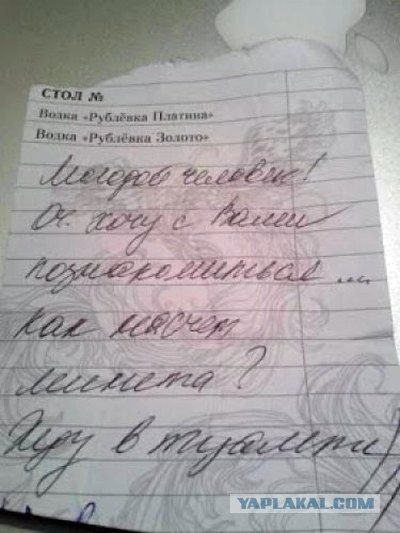 СТОЛ №
Водка «Рублёвка Платина»
Водка «Рублёвка Золото»
Молодой человек!
Оч. хочу с Вами
познакомиться ...
Как насчет
минета?
Жду в туалете)
YAPLAKAL.COM